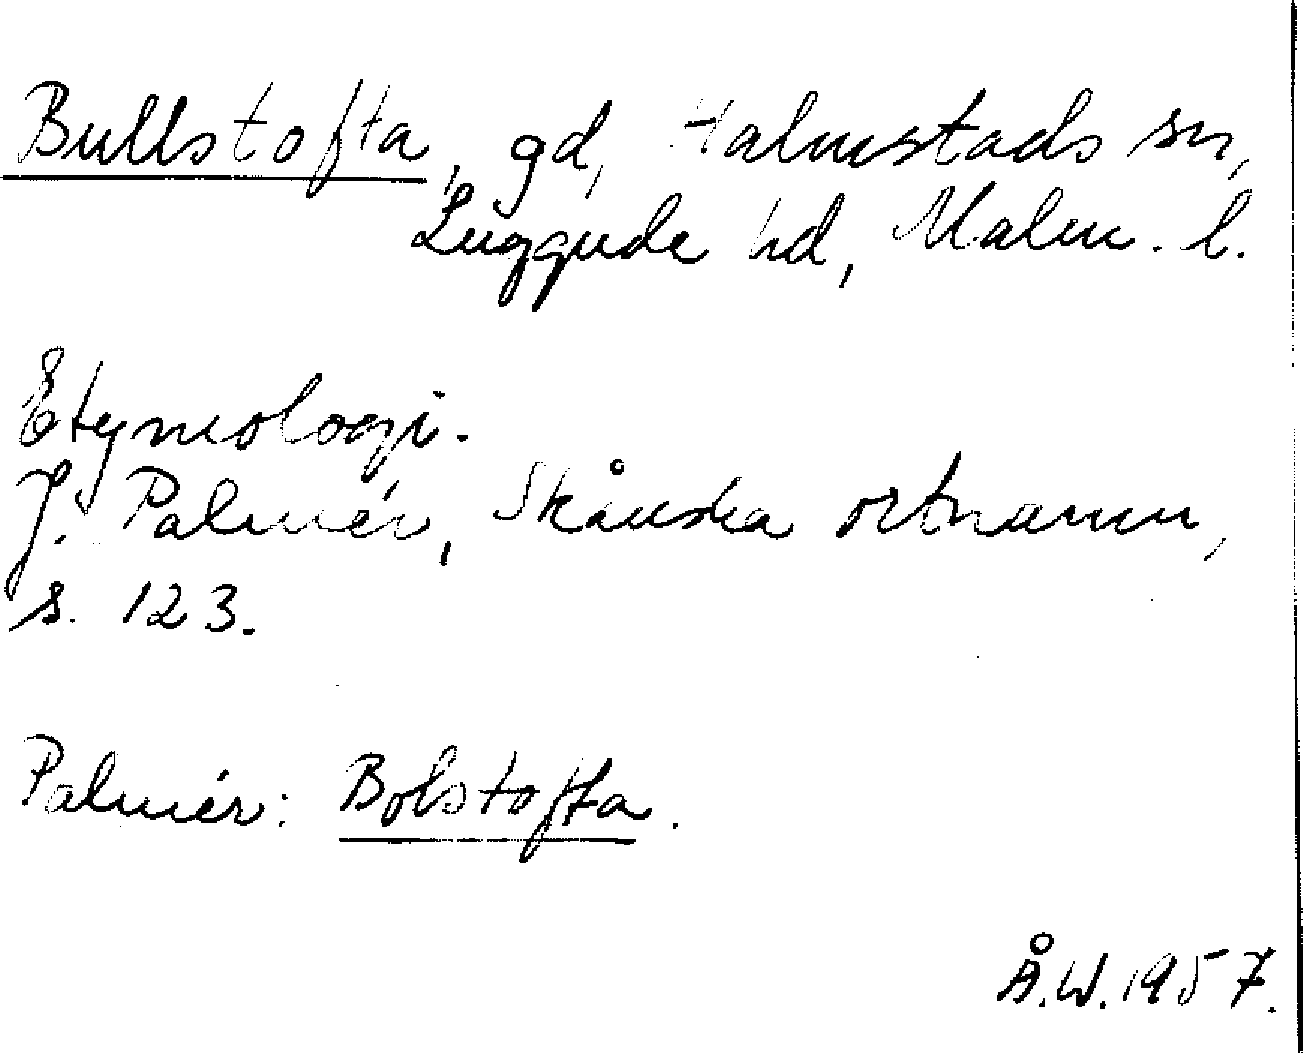 Bullstofta, gd, Halmstads sn,
Luggude hd, Malm. l.
Etymologi.
J. Palmér, Skånska ortnamn,
s. 123.
Palmér: Bolstofta.
Å.W. 1957.